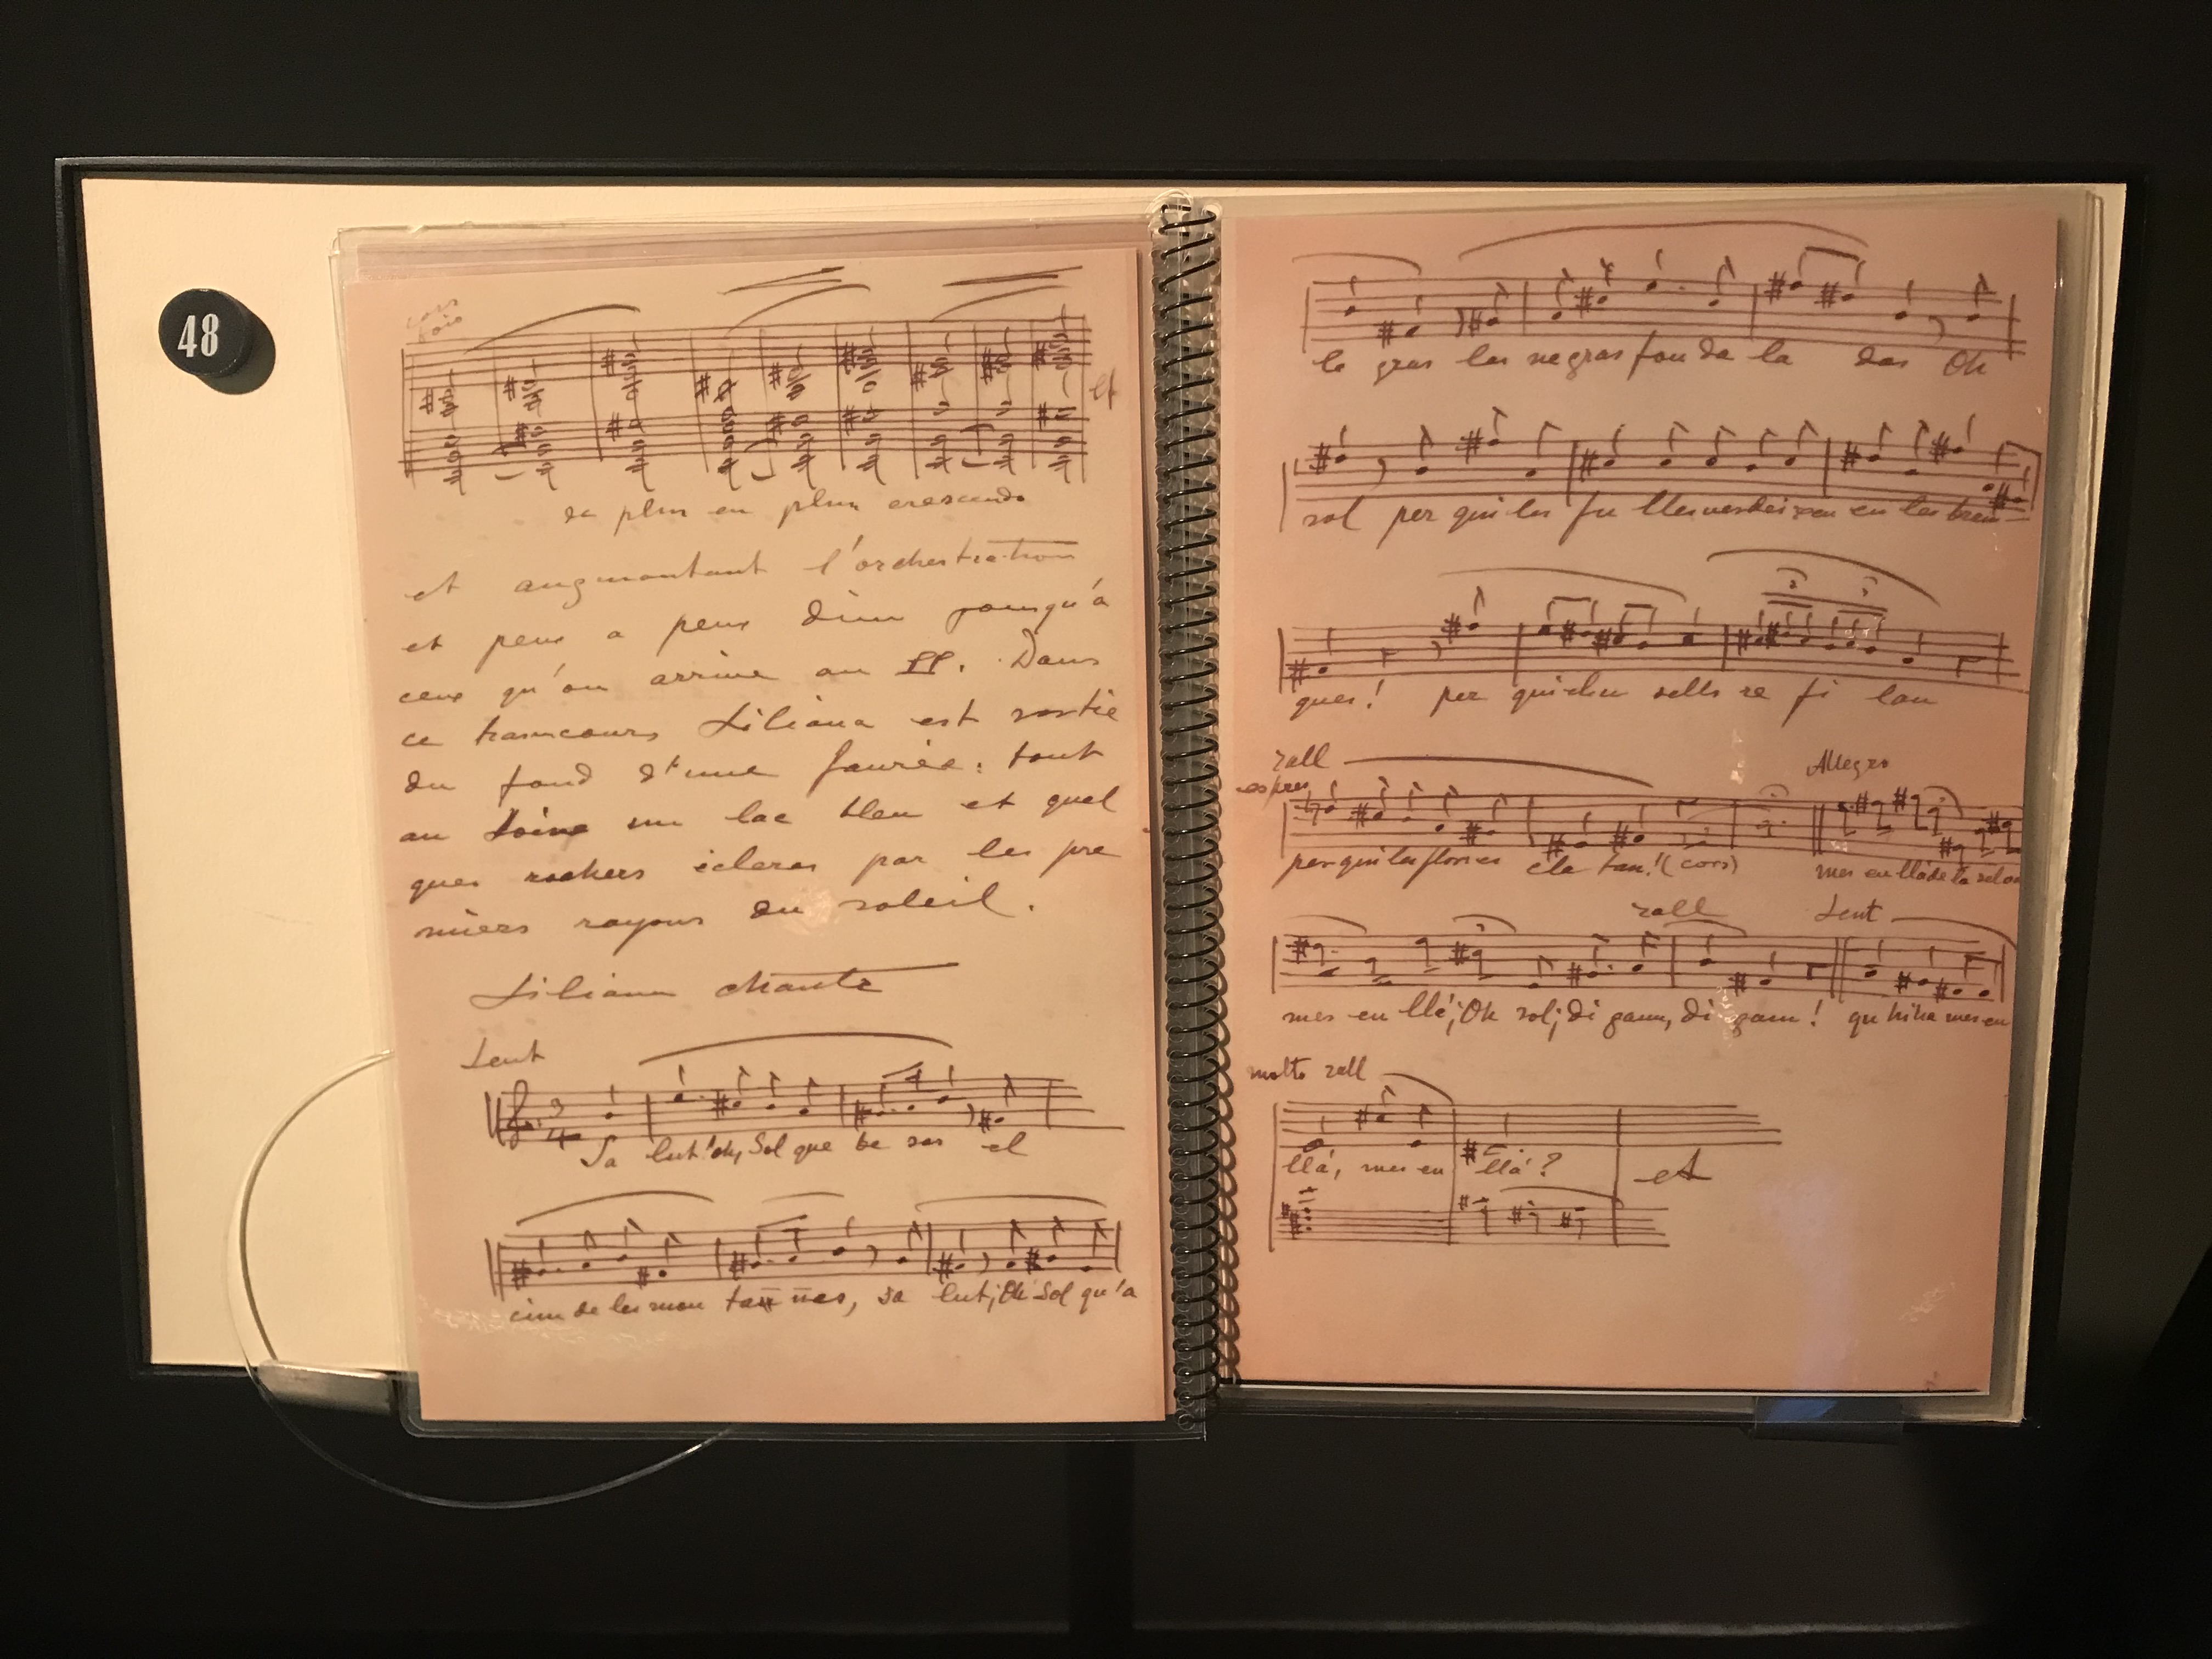 48
et
de plus en plus crescendo
et augmontant l'orchestration
et peux a peux d'un jousqu'à
ceux qu'on arrive au ff. Dans
ce transcours Liliana est sortie
du fond d'une fourèe: tout
au loine un lac bleu et quel
ques rochers èclerès par les pre
mièrs rayons du soleil.
Liliana chante
Lent
3
4
Sa lut! oh, Sol que be ses el
cim de les mon ta nyes, sa lut; Oh Sol qu'a
le gras les negras fon da la das Oh
sol per qui les fu lles verdei en les bran
ques! per qui els ocells re fi lan
rall
espres
Allegro
per qui les flors es cla tan! (cors) mes en llà de ta
rall Lent
mes en llà; Oh sol; di gam, di gam! qu hi ha mes en
molto rall
llá, mes en llá? et